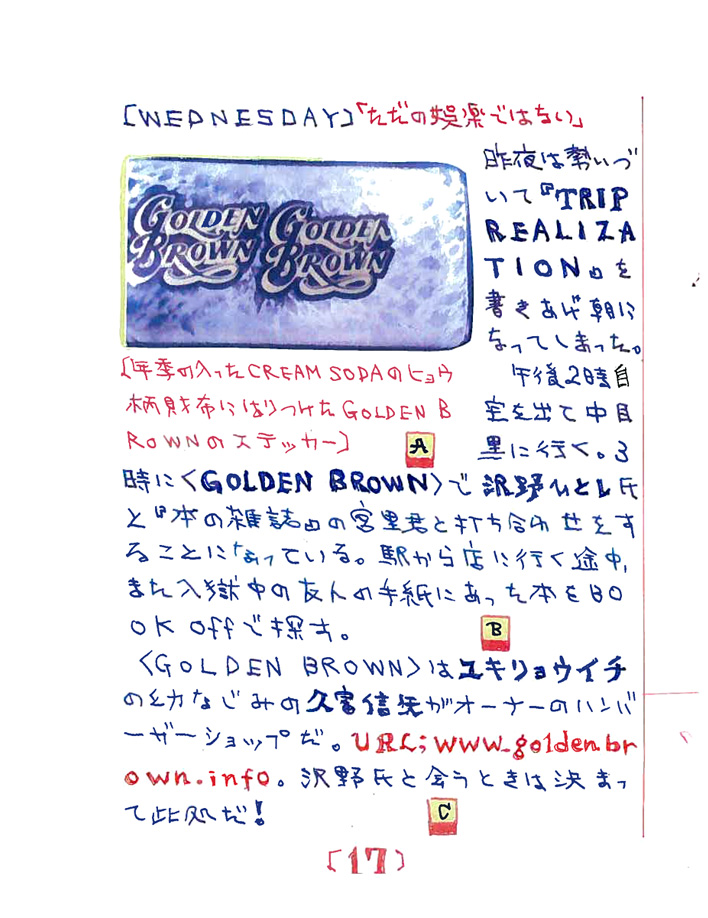 [WEDNESDAY]「ただの娯楽ではない」
GOLDEN BROWN
GOLDEN BROWN
昨夜は勢いづ
いて『TRIP
REALIZA
TION』を
書きあげ朝に
なってしまった。
午後2時自
室を出て中目
黒に行く。3
[年季の入ったCREAM SODAのヒョウ
柄財布にはりつけたGOLDEN B
ROWNのステッカー]
A
時に〈GOLDEN BROWN〉で沢野ひとし氏
と『本の雑誌』の宮里君と打ち合わせをす
ることになっている。駅から店に行く途中,
また入獄中の友人の手紙にあった本をBO
OK Offで探す。
B
〈GOLDEN BROWN〉はユキリョウイチ
の幼なじみの久富信矢がオーナーのハンバ
ーガーショップだ。URL;www.golden.br
own.info。沢野氏と会うときは決まっ
て此処だ!
C
[17]